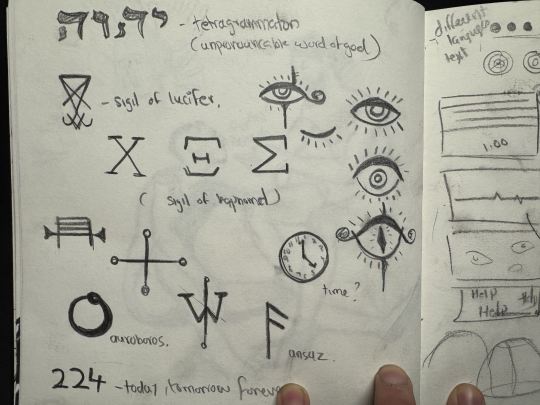 - tetragrammaton
(unpronouncable word of god)
- sigil of lucifer.
Χ Ξ Σ
( sigil of )
time?
ouroboros.
ansuz.
224 - today, tomorrow forever
different
languages
text
1.00
Help Help
Help